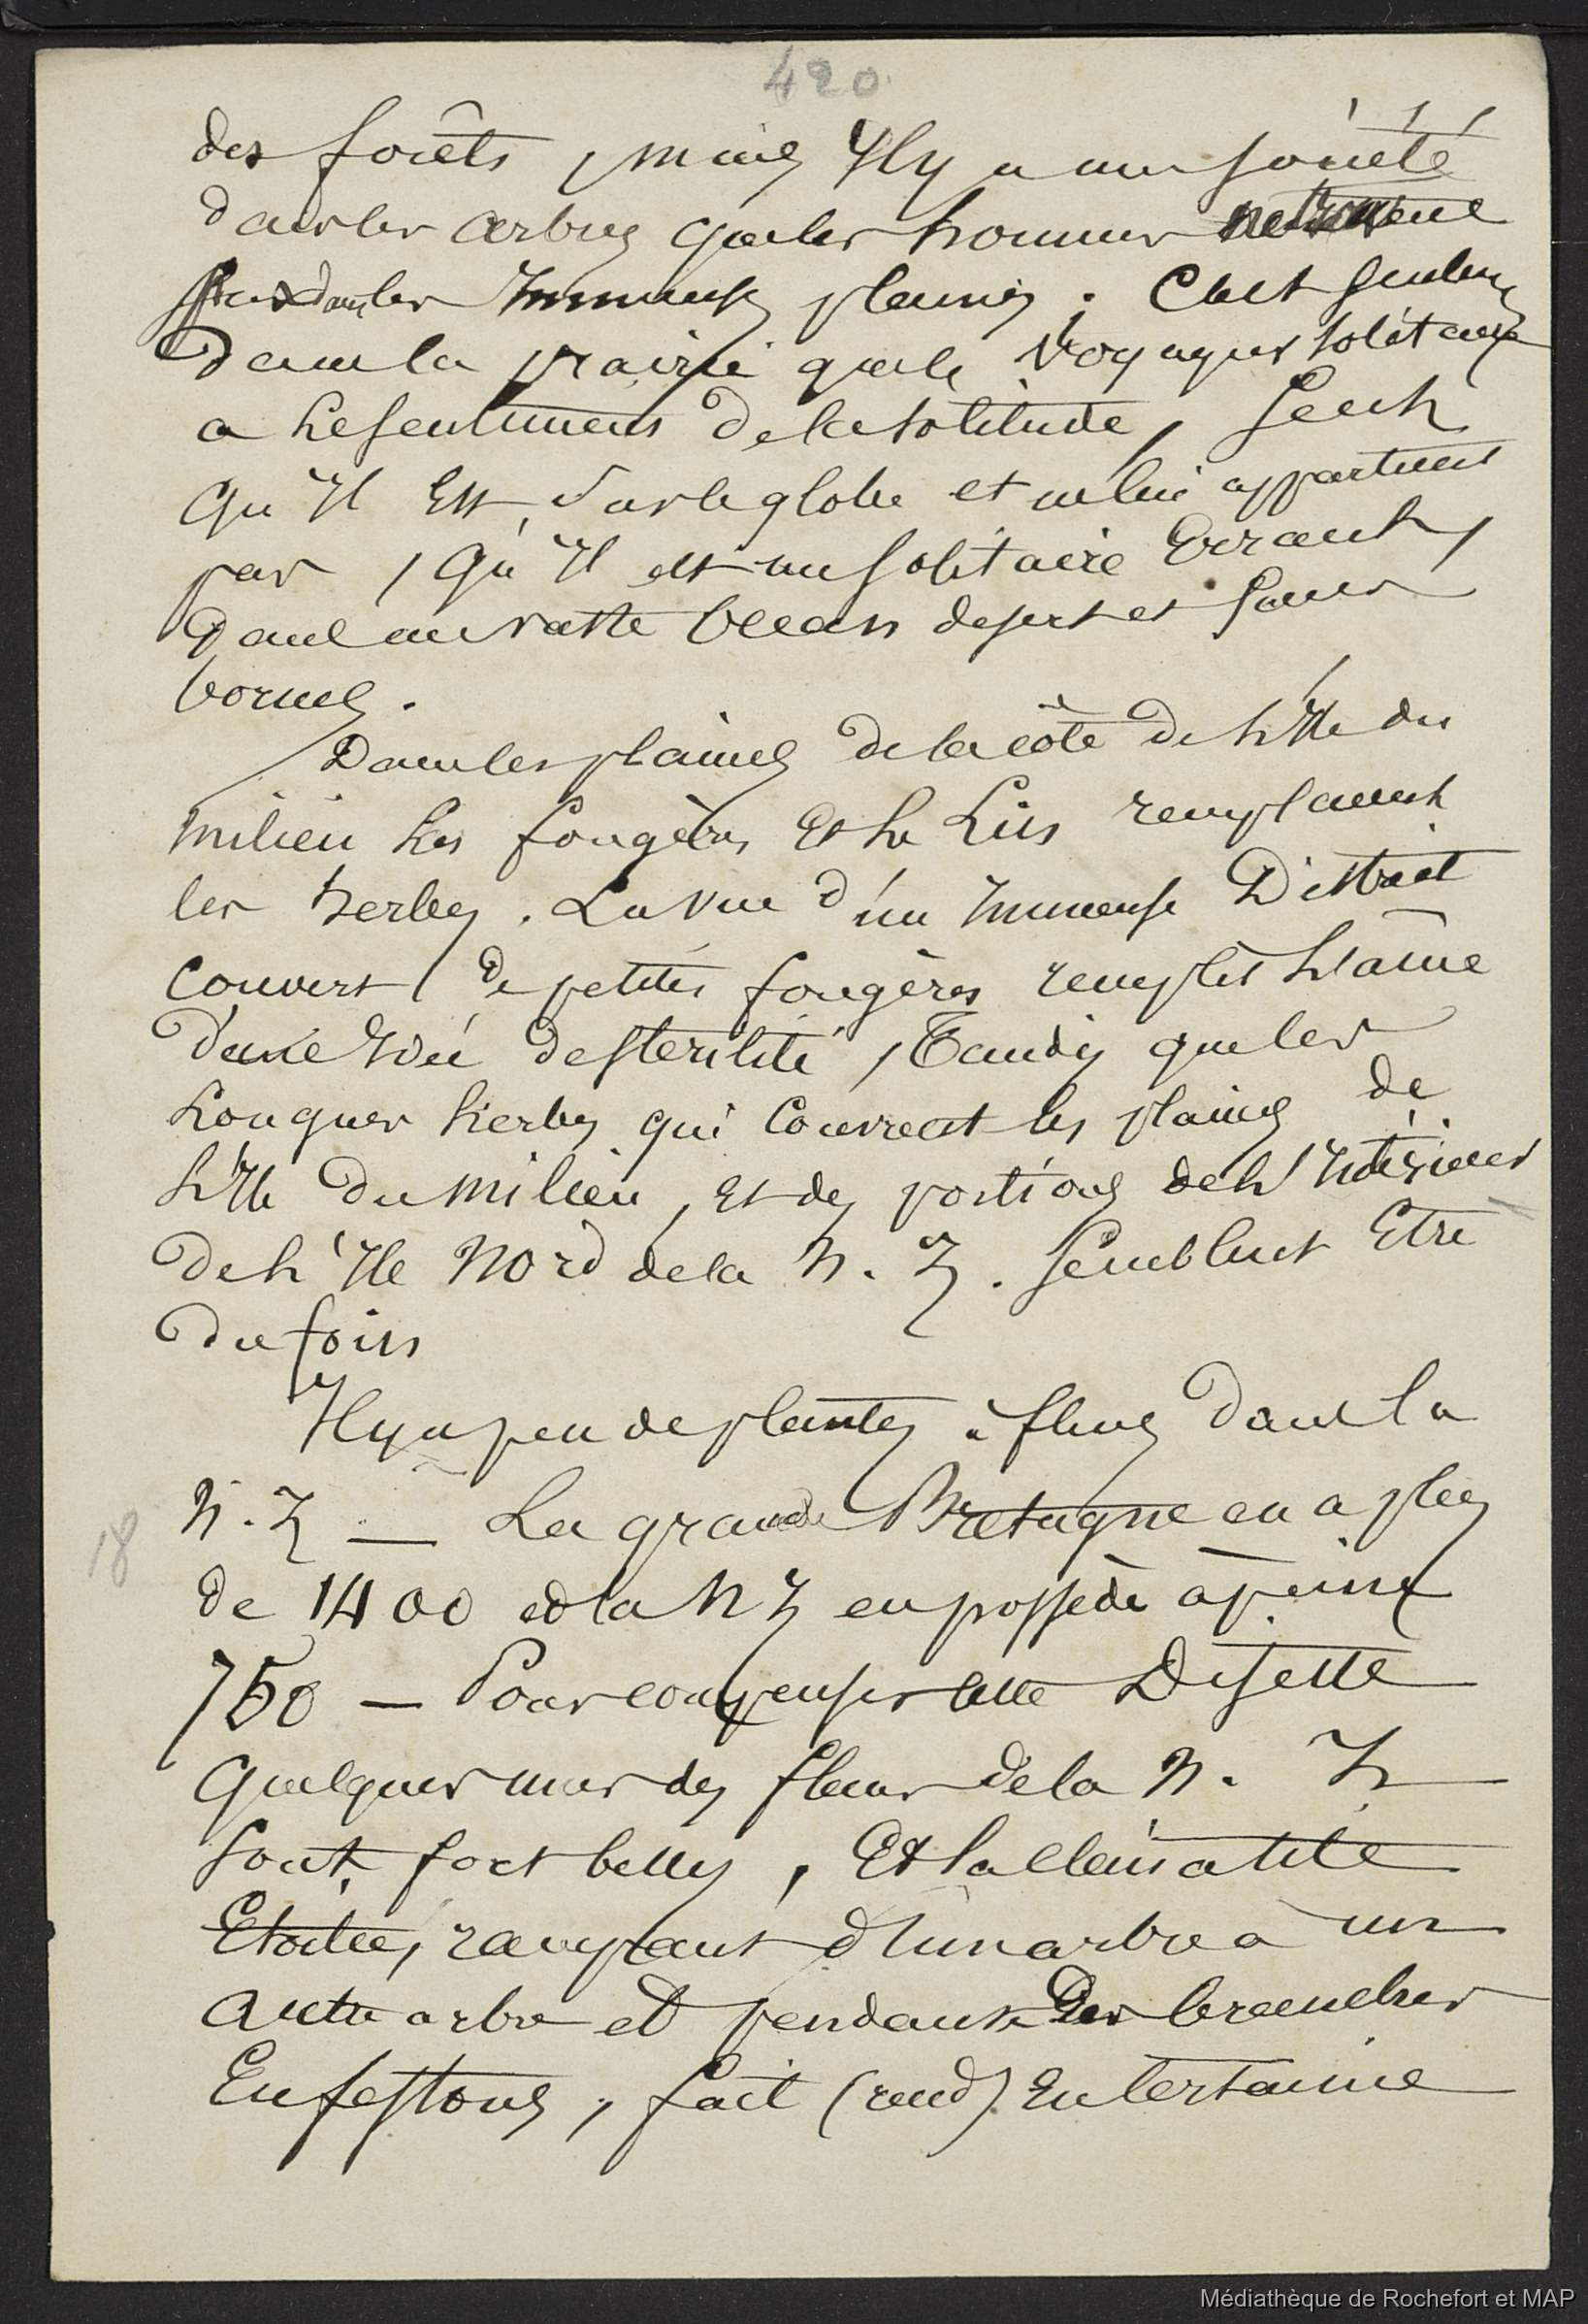 420
des forêts, mais Il y a une société
dans les arbres que les hommes ne trouvent
pas dans les Immenses plaines. C'est seulem
dans la prairie que le voyageur solitaire
a le sentiment de la solitude, sent
qu'Il Est sur le globe et ne lui appartient
pas, qu'Il est un solitaire Errant,
Dans un vaste Océan desert et sans
bornes.
Dans les plaines de la côte de l'Ile du
milieu les fougères Et le Lin remplacent
les herbes. La vue d'un Immense District
couvert de petites fougères remplit l'âme
d'une Idée de stérilité, Tandis que les
Longues herbes qui couvrent les plaines de
l'Ile du milieu, et des portions de l'Intérieur
de l'Ile Nord de la N. Z. semblent Etre
du foin
Il y a peu de plantes à fleurs dans la
N. Z — La grande Bretagne en a plus
18
de 1400 et la N Z en possède à peine
750 — Pour compenser cette Disette
quelques unes des fleurs de la N. Z
sont fort belles, Et la clématite
Etoilée, rampant d'un arbre à un
autre arbre et pendant Des branches
En festons, fait (rend) En certaine
Médiathèque de Rochefort et MAP